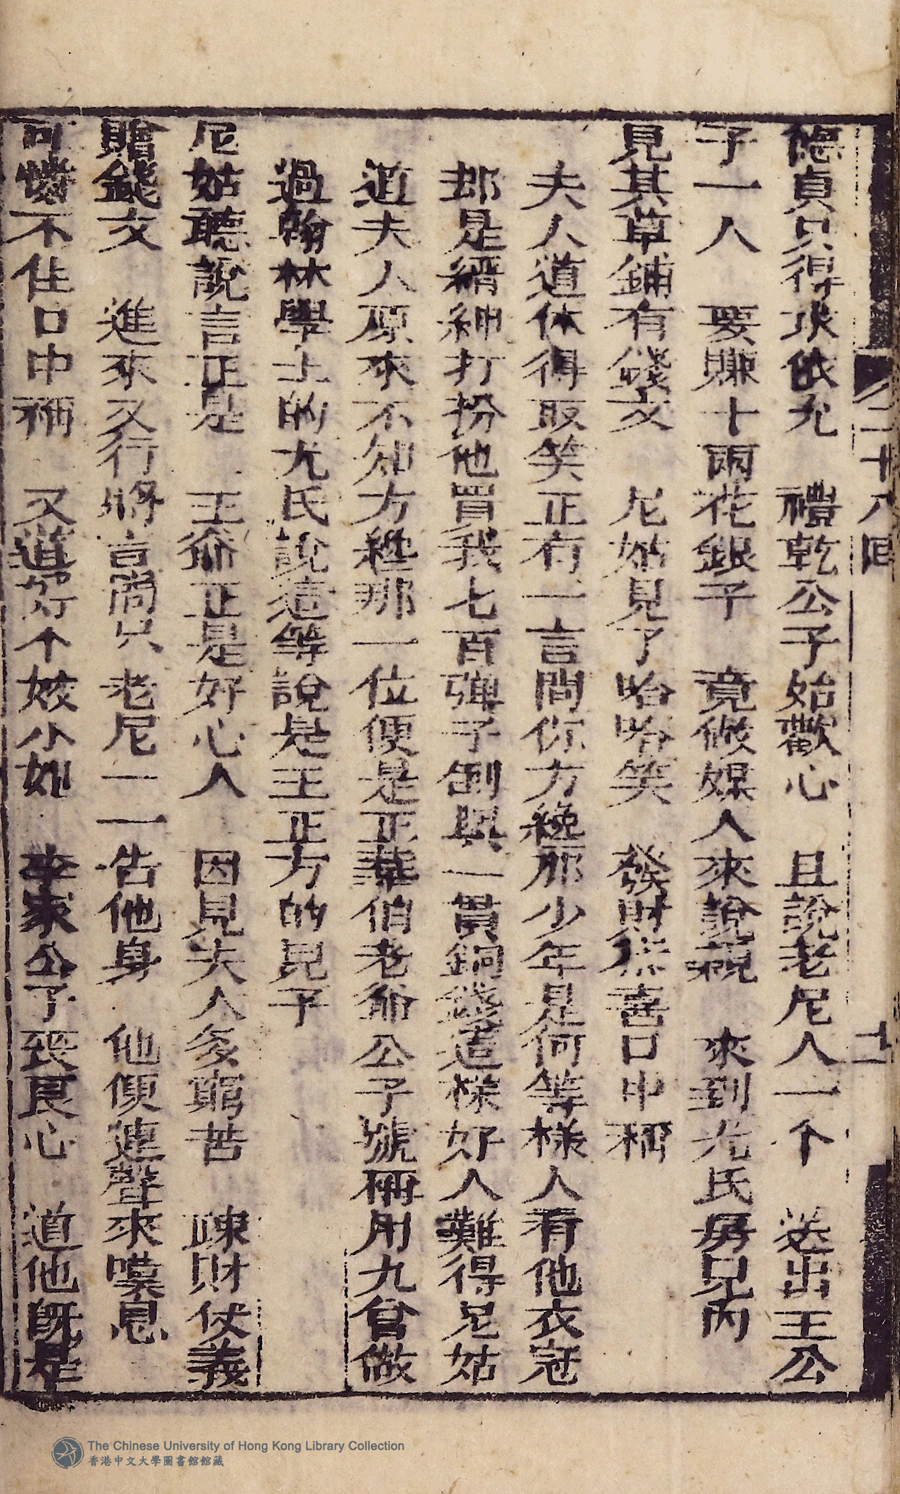 二十八回
十一
德貞只得求依允 禮乾公子始歡心 且說老尼人一个 送出王公
子一人 要賺十兩花銀子 竟做媒人來說親 來到尤氏房兒內
見其草鋪有錢文 尼姑見了哈哈笑 發財恭喜口中稱
夫人道休得取笑正有一言問你方纔那少年是何等樣人看他衣冠
却是縉紳打扮他買我七百彈子倒與一貫銅錢這樣好人難得尼姑
道夫人原來不知方纔那一位便是正華伯老爺公子號稱用九曾做
過翰林學士的尤氏說這等說是王正方的兒子
尼姑聽說言正是 王爺正是好心人 因見夫人多窮苦 疎財仗義
贈錢文 進來又行將言問只 老尼一一告他身 他便連聲來嘆息
可憐不住口中稱 又道好个姣小如 李家公子喪良心 道他既是
The Chinese University of Hong Kong Library Collection
香港中文大學圖書館館藏